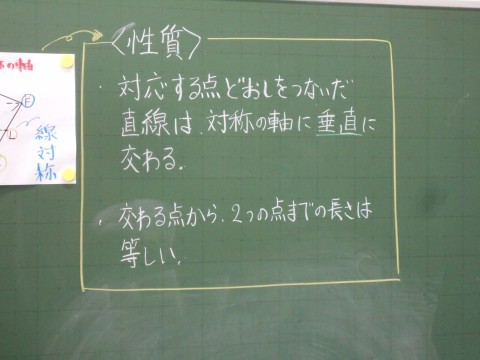 〈性質〉
・対応する点どおしをつないだ
直線は、対称の軸に垂直に
交わる.
・交わる点から、2つの点までの長さは
等しい.
の軸
E
線対
称